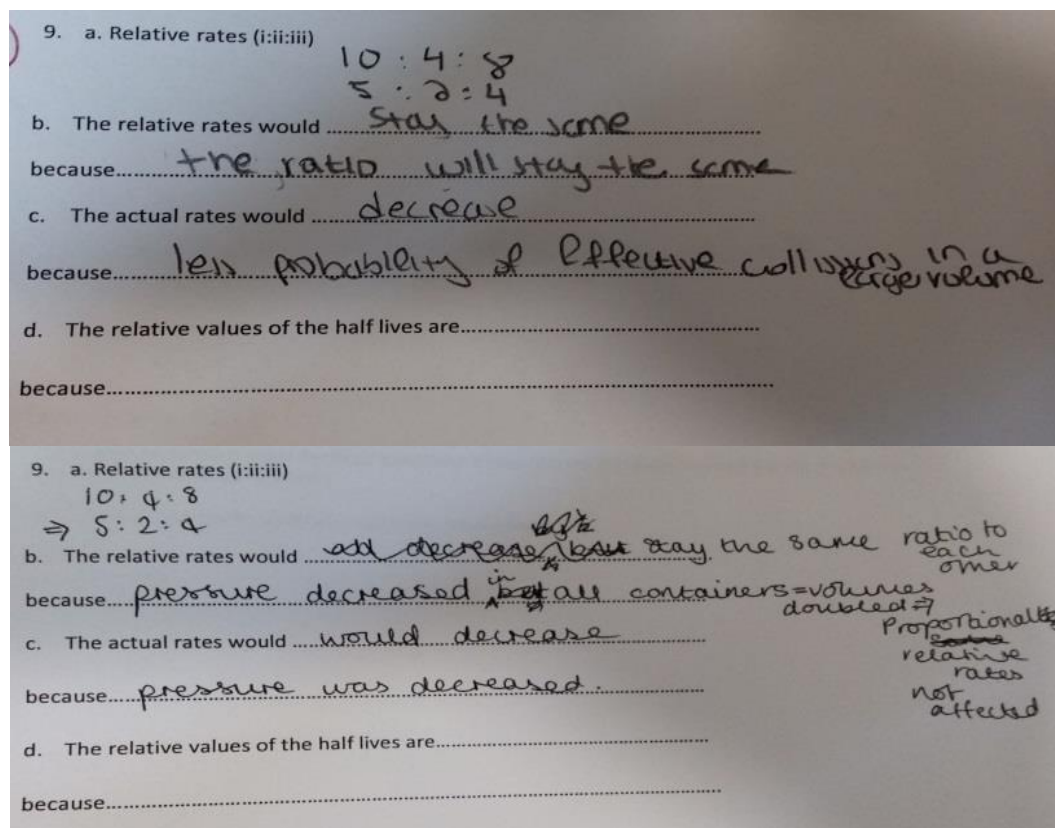 9. a. Relative rates (i:ii:iii)
10 : 4 : 8
5 : 2 : 4
b. The relative rates would ......stay the same......
because......the ratio will stay the same
c. The actual rates would ......decrease......
because......less probability of effective collisions in a
large volume
d. The relative values of the half lives are......
because......
9. a. Relative rates (i:ii:iii)
10 : 4 : 8
⇒ 5 : 2 : 4
b. The relative rates would ......decrease, but stay the same ratio to
each
other
because....pressure decreased in all containers = volumes
doubled ⇒
Proportionally
relative
rates
not
affected
c. The actual rates would ....would decrease......
because....pressure was decreased.......
d. The relative values of the half lives are......
because......